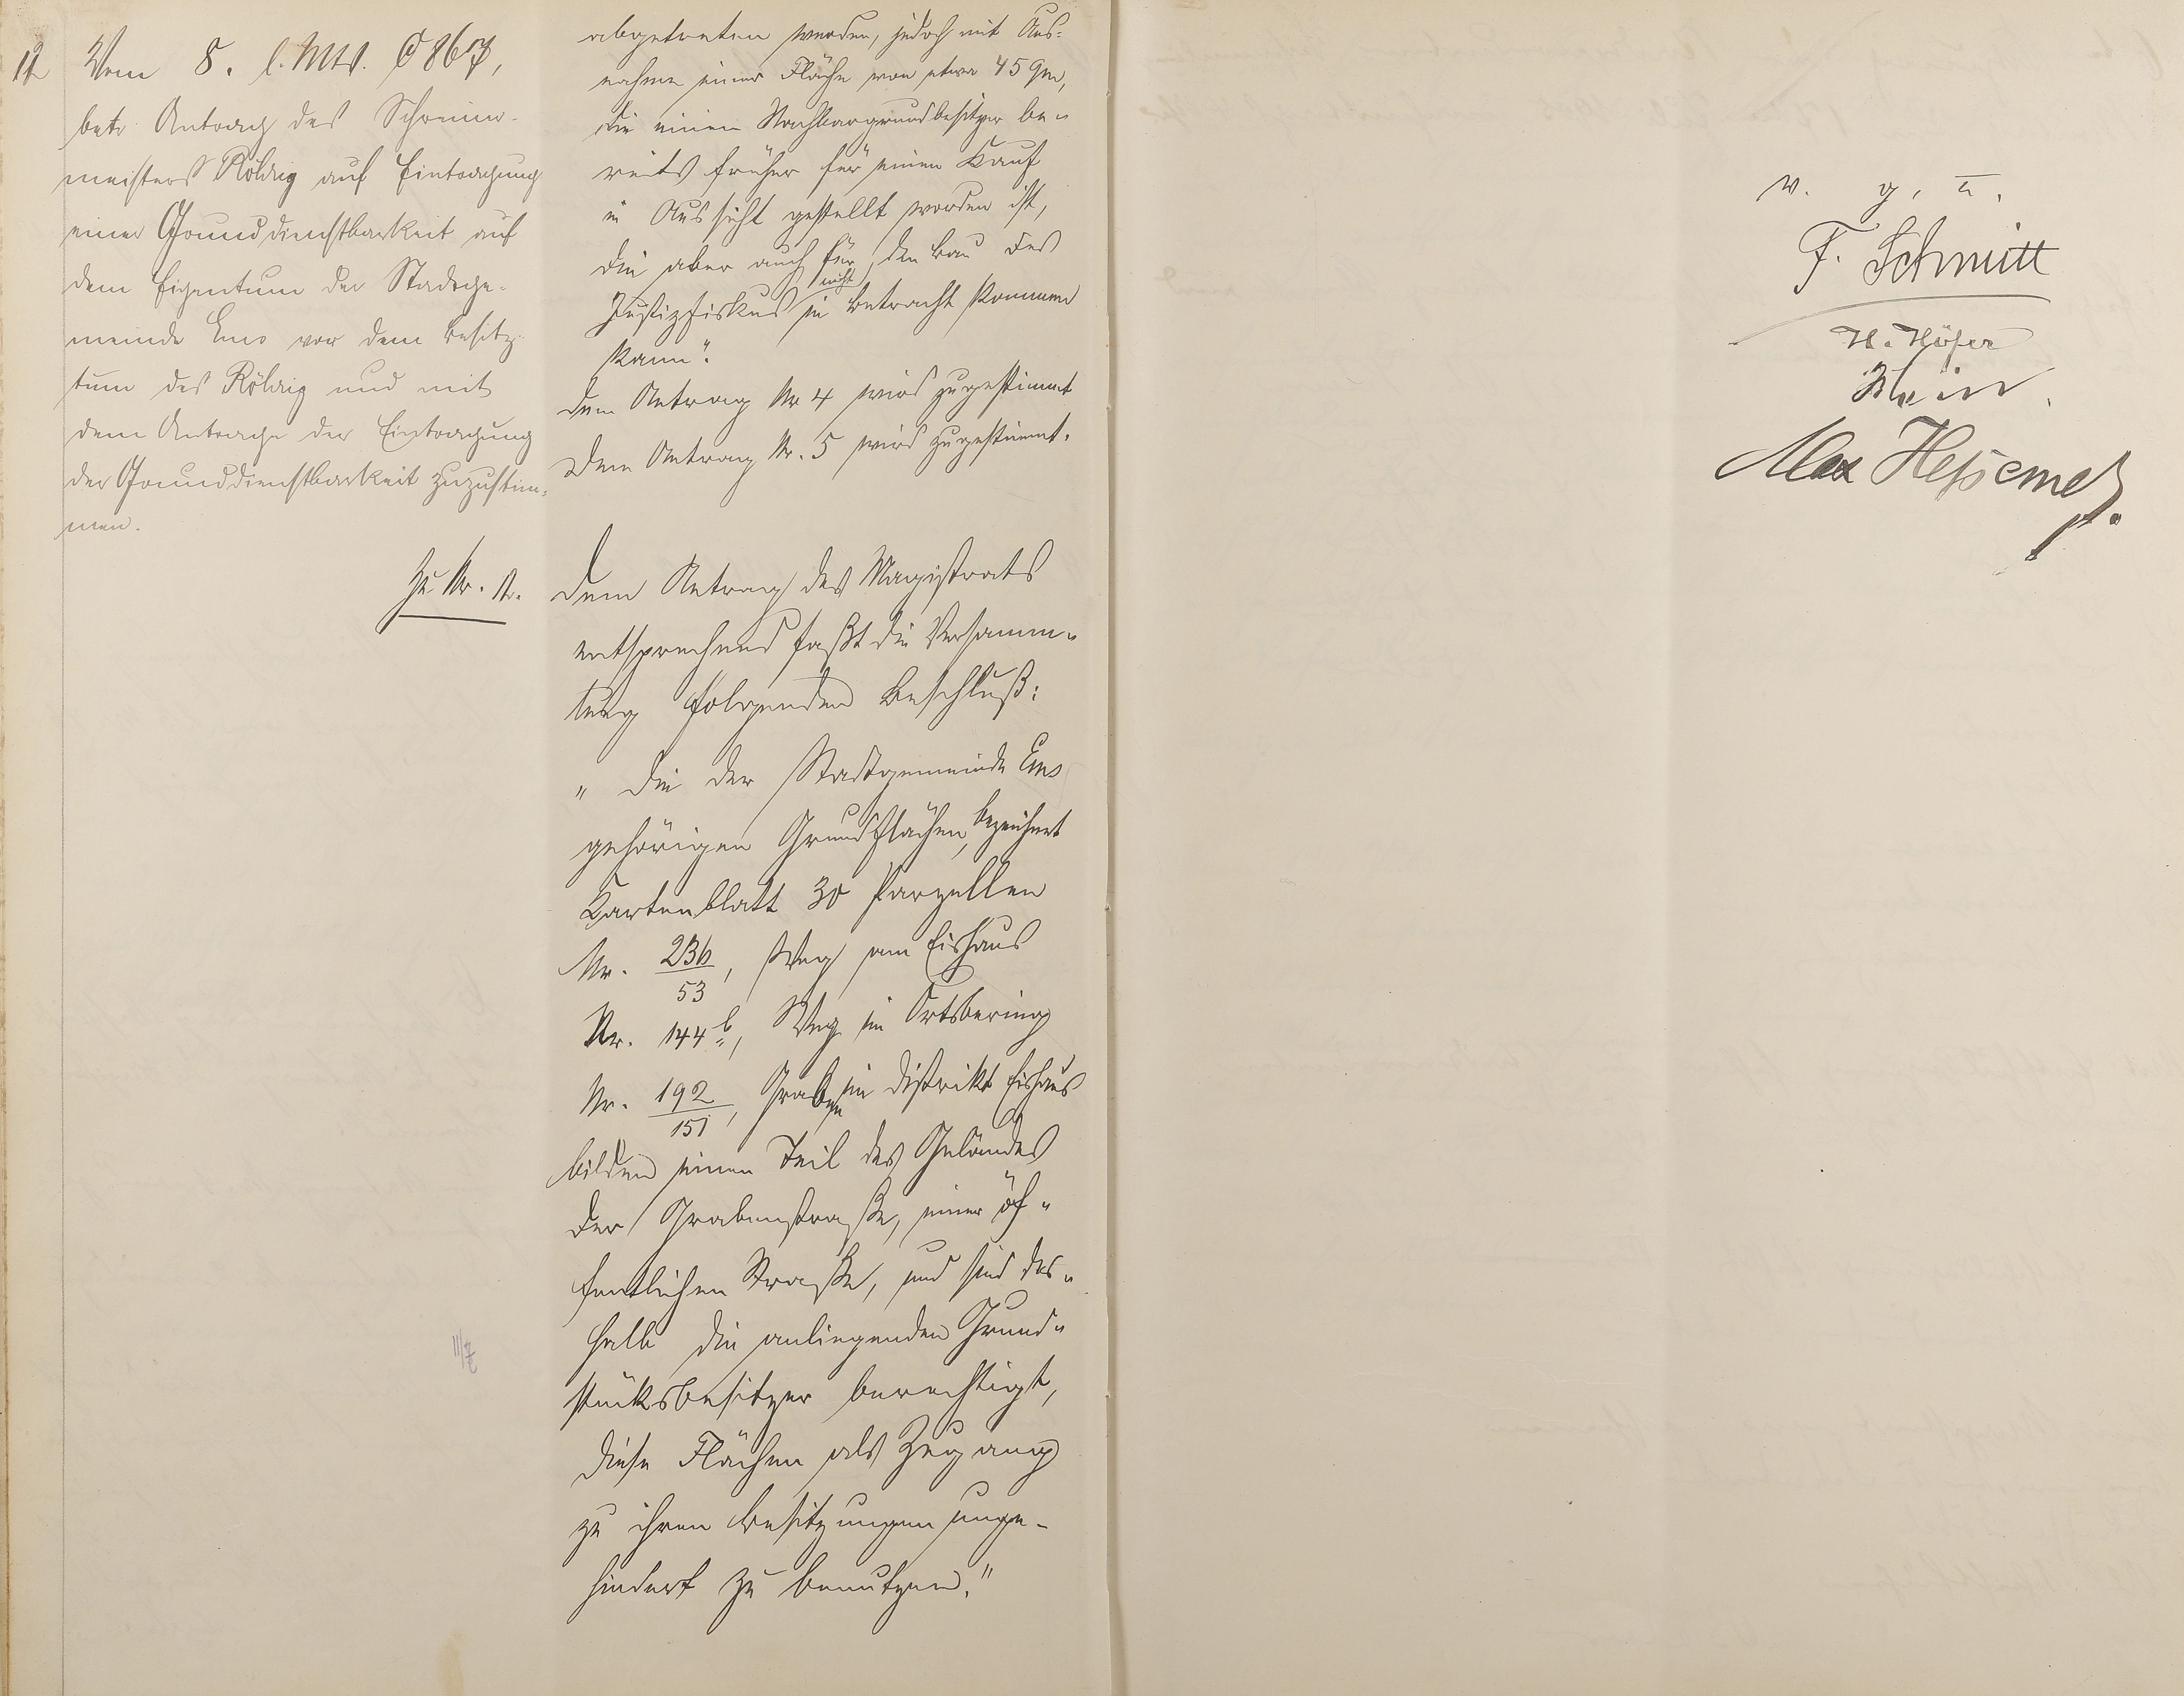 12
Vom 8. l. Mts. C 867,
betr Antrag des Schreiner-
meisters Röhrig auf Eintragung
einer Grunddienstbarkeit auf
dem Eigentum der Stadtge-
meinde Ems vor dem Besitz-
tum des Röhrig und mit
dem Antrage der Eintragung
der Grunddienstbarkeit zuzustim-
men.
abgetreten werden, jedoch mit Aus-
nahme einer Fläche von etwa 45 qm,
die einem Nachbargrundbesitzer be-
reits früher für einen Kauf
in Aussicht gestellt worden ist,
die aber auch für den Bau des
Justizfiskus nicht in Betracht kommen
kann".
Dem Antrag Nr 4 wird zugestimmt
Dem Antrag Nr. 5 wird zugestimmt.
Zu Nr. 12. Dem Antrag des Magistrats
entsprechend faßt die Versamm-
lung folgenden Beschluß:
" Die der Stadtgemeinde Ems
gehörigen Grundflächen, bezeichnet
Kartenblatt 30 Parzellen
Nr. 236/53, Weg am Eishaus
Nr. 144b, Weg im Ortsbering
Nr. 192/151, Graben im Distrikt Eishaus
bilden einen Teil des Geländes
der Grabenstraße, einer öf-
fentlichen Straße, und sind des-
halb die anliegenden Grund-
stücksbesitzer berechtigt,
diese Flächen als Zugang
zu ihren Besitzungen unge-
hindert zu benutzen."
11/7
v. g. u.
F. Schmitt
H. Höfer
Max Heßemer